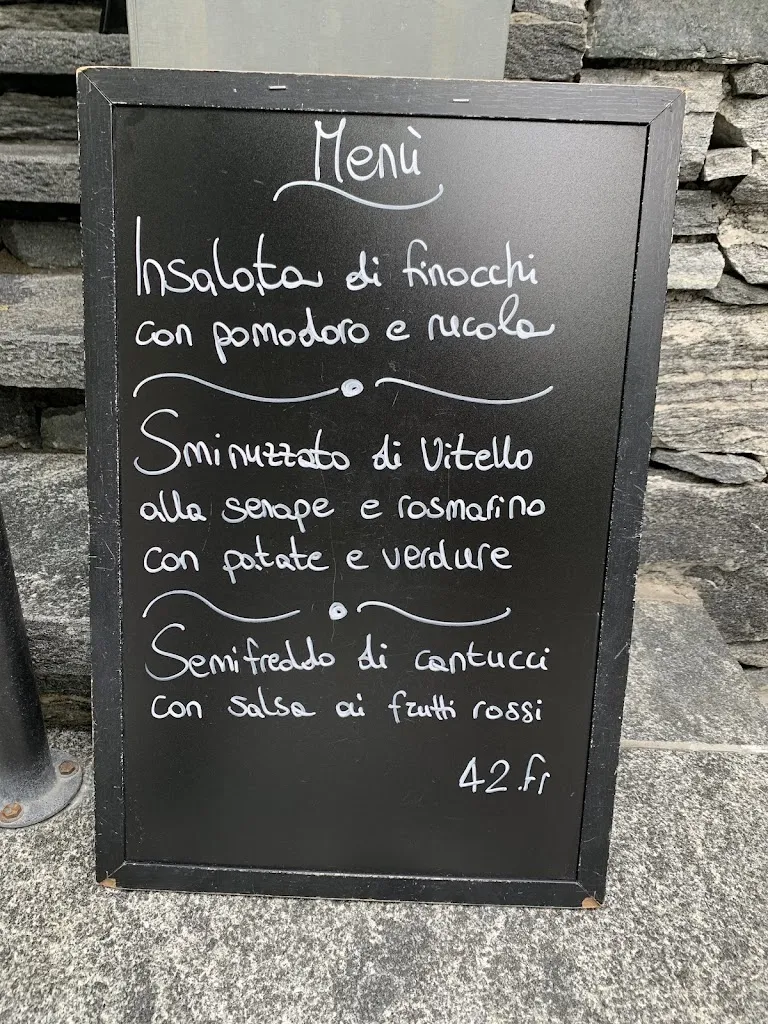 Menù
Insalata di finocchi
con pomodoro e rucola
Sminuzzato di Vitello
alla senape e rosmarino
con patate e verdure
Semifreddo di cantucci
con salsa ai frutti rossi
42.fr